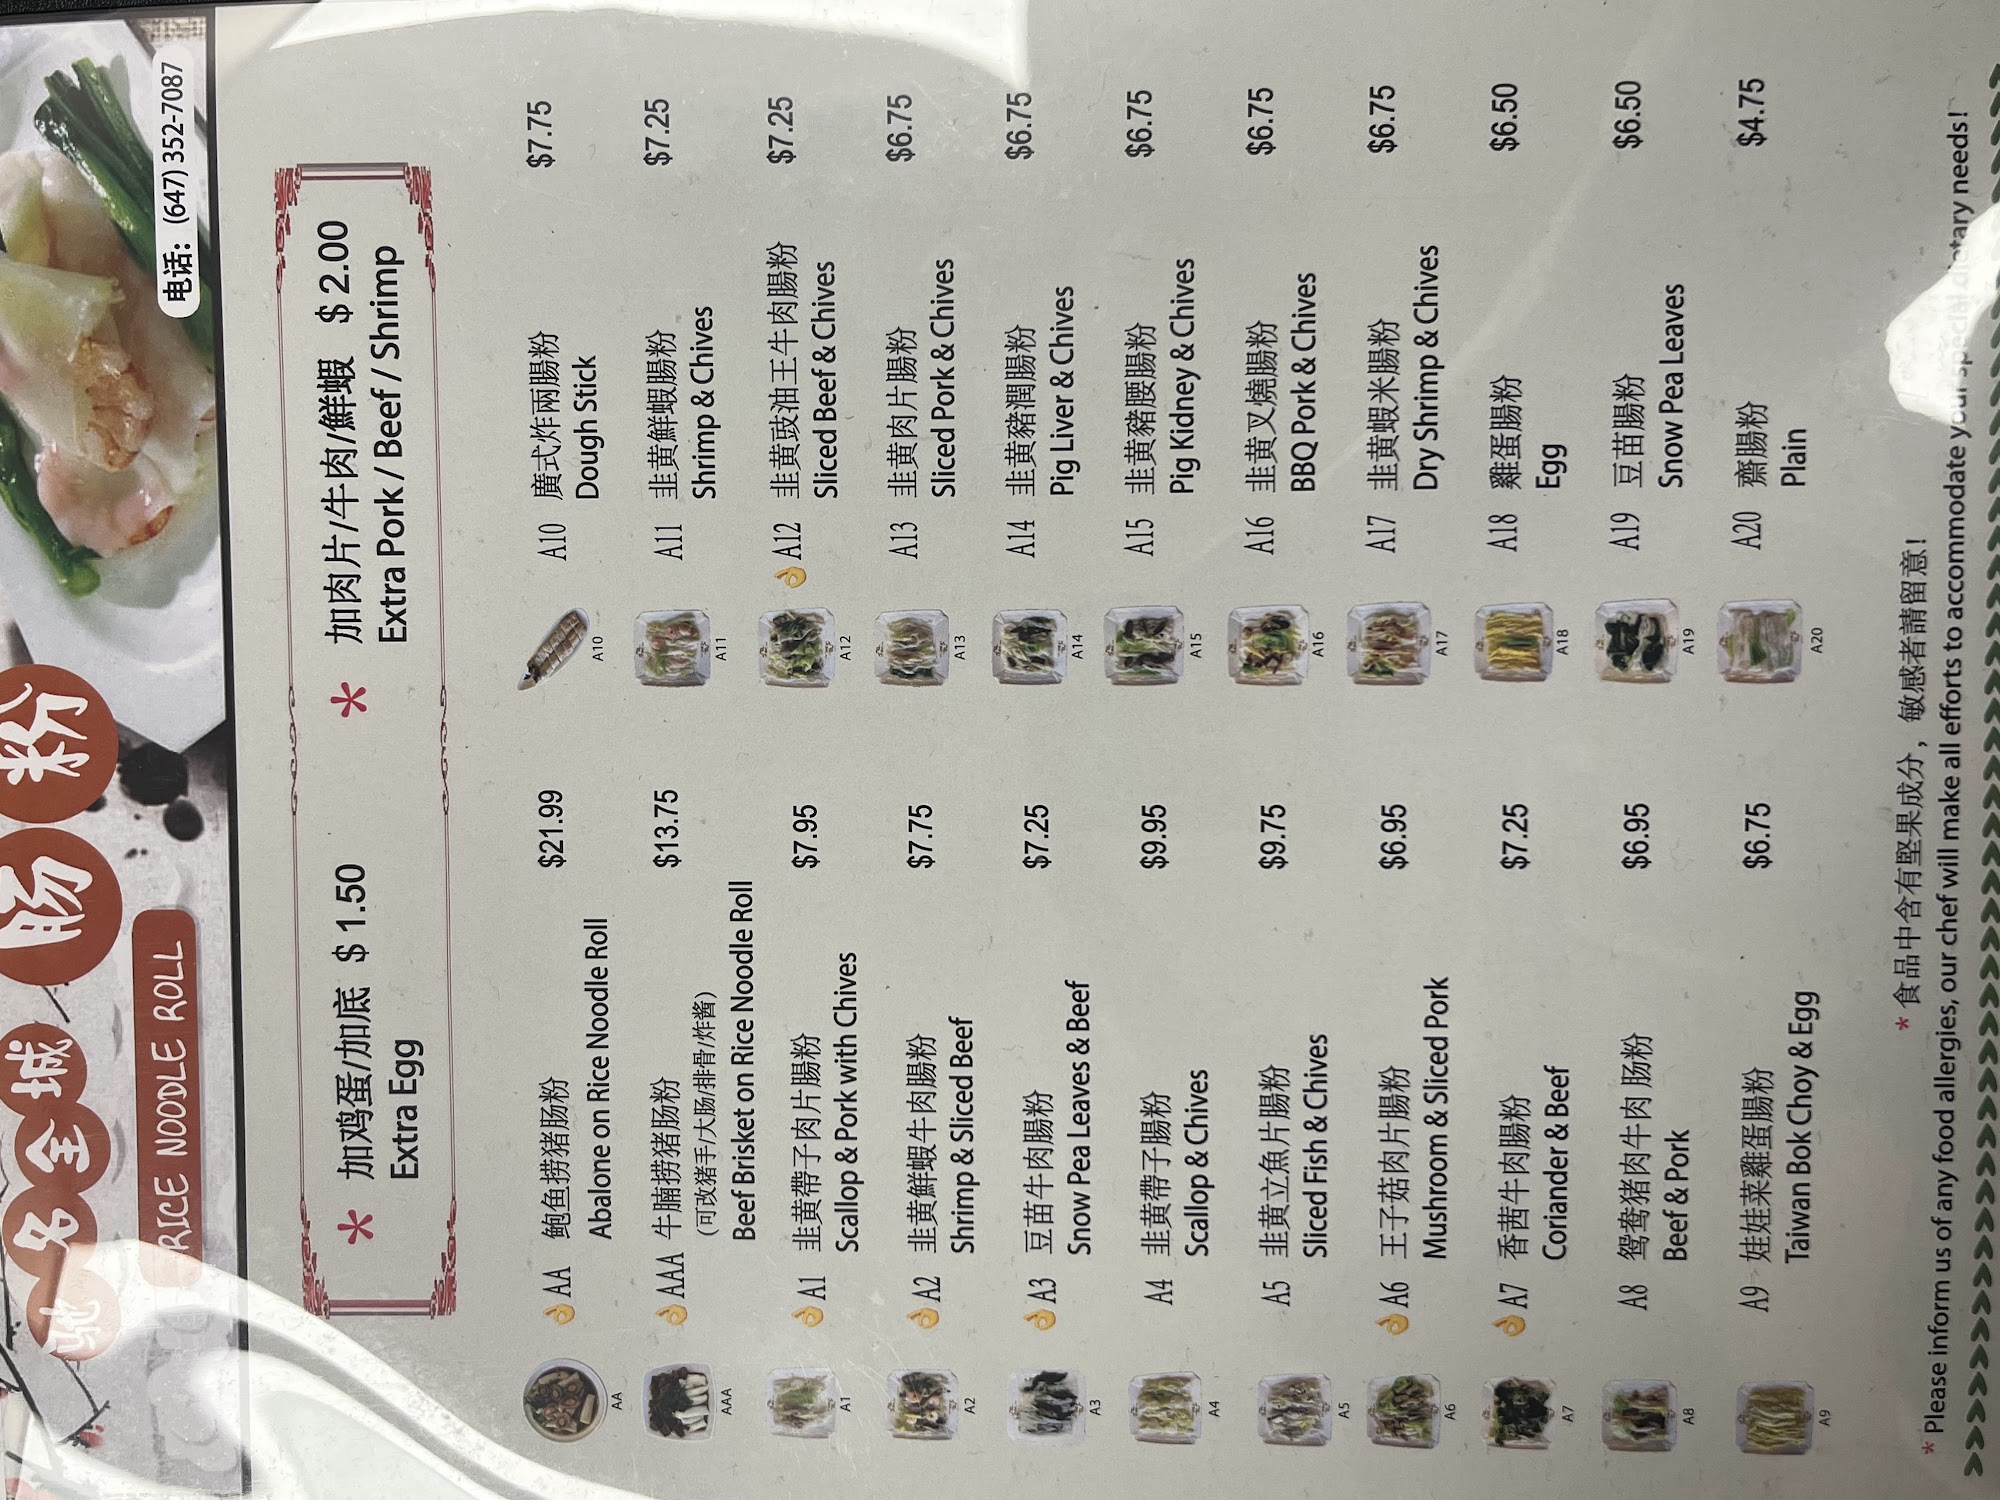 驰名全城 肠粉
RICE NOODLE ROLL
电话: (647) 352-7087
* 加鸡蛋/加底 $ 1.50
Extra Egg
* 加肉片/牛肉/鮮蝦 $ 2.00
Extra Pork / Beef / Shrimp
👌 AA 鲍鱼捞猪肠粉 $21.99
Abalone on Rice Noodle Roll
AA
👌 AAA 牛腩捞猪肠粉 $13.75
(可改猪手/大肠/排骨/炸酱)
Beef Brisket on Rice Noodle Roll
AAA
👌 A1 韭黄帶子肉片腸粉 $7.95
Scallop & Pork with Chives
A1
👌 A2 韭黄鮮蝦牛肉腸粉 $7.75
Shrimp & Sliced Beef
A2
👌 A3 豆苗牛肉腸粉 $7.25
Snow Pea Leaves & Beef
A3
A4 韭黄帶子腸粉 $9.95
Scallop & Chives
A4
A5 韭黄立魚片腸粉 $9.75
Sliced Fish & Chives
A5
👌 A6 王子菇肉片腸粉 $6.95
Mushroom & Sliced Pork
A6
👌 A7 香茜牛肉腸粉 $7.25
Coriander & Beef
A7
A8 鸳鸯猪肉牛肉 肠粉 $6.95
Beef & Pork
A8
A9 娃娃菜雞蛋腸粉 $6.75
Taiwan Bok Choy & Egg
A9
A10 廣式炸兩腸粉 $7.75
Dough Stick
A10
A11 韭黄鮮蝦腸粉 $7.25
Shrimp & Chives
A11
👌 A12 韭黄豉油王牛肉腸粉 $7.25
Sliced Beef & Chives
A12
A13 韭黄肉片腸粉 $6.75
Sliced Pork & Chives
A13
A14 韭黄豬潤腸粉 $6.75
Pig Liver & Chives
A14
A15 韭黄豬腰腸粉 $6.75
Pig Kidney & Chives
A15
A16 韭黄叉燒腸粉 $6.75
BBQ Pork & Chives
A16
A17 韭黄蝦米腸粉 $6.75
Dry Shrimp & Chives
A17
A18 雞蛋腸粉 $6.50
Egg
A18
A19 豆苗腸粉 $6.50
Snow Pea Leaves
A19
A20 齋腸粉 $4.75
Plain
A20
* 食品中含有堅果成分，敏感者請留意！
* Please inform us of any food allergies, our chef will make all efforts to accommodate your special dietary needs!